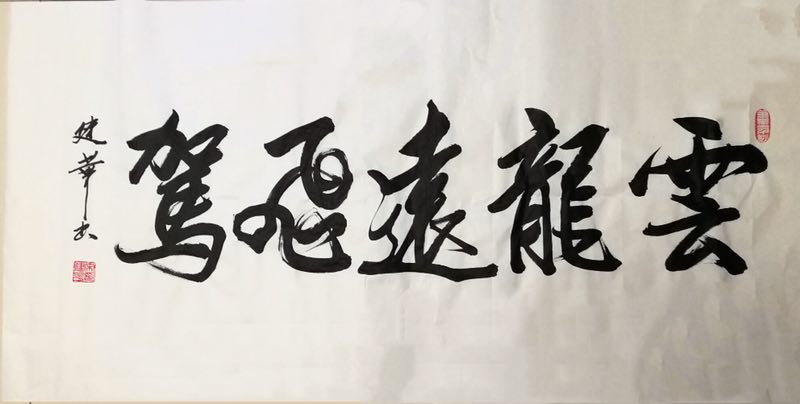 雲龍遠飛駕
建華书